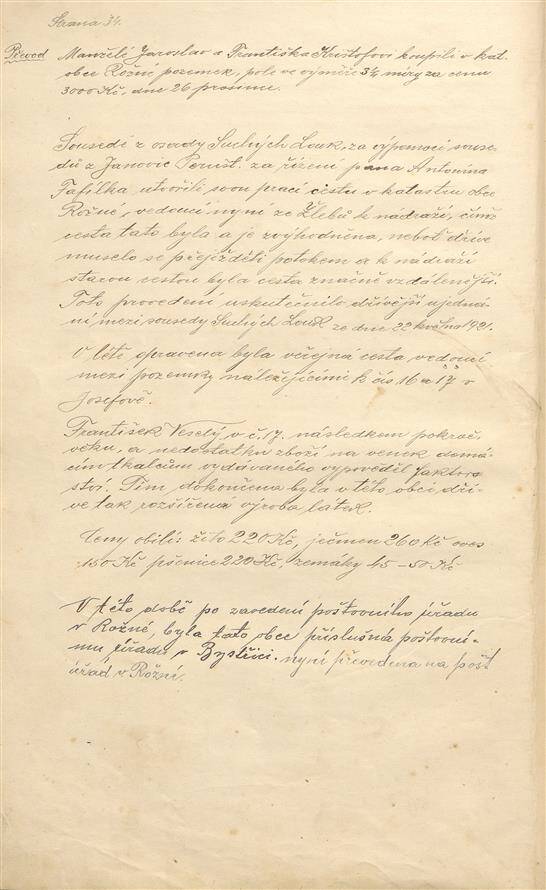 Strana 34.
Převod Manželé Jaroslav a Františka Krištofovi koupili v kat.
obce Rožné pozemek, pole ve výměře 3 1/2 míry za cenu
3000 Kč, dne 26 prosince.
Sousedi z osady Suchých Louk, za výpomoci souse-
dů z Janovic Pernšt. za řízení pana Antonína
Tafilka utvořili svou prací cestu v katastru obce
Rožné, vedoucí nyní ze Žlebů k nádraží, čímž
cesta tato byla a je zvýhodněna, neboť dříve
muselo se přejížděti potokem a k nádraží
starou cestou byla cesta značně vzdálenější.
Toto provedení uskutečnilo dřívější ujedná-
ní mezi sousedy Suchých Louk ze dne 22 května 1921.
V létě spravena byla veřejná cesta vedoucí
mezi pozemky náležejícími k čís 16 a 17 v
Josefově.
František Veselý v č. 17. následkem pokroč.
věku, a nedostatku zboží na venek domá-
cím tkalcům vydávaného vypověděl faktor
ství. Tím dokončena byla v této obci dří-
ve tak rozšířená výroba látek.
Ceny obilí: žito 220 Kč, ječmen 260 Kč oves
150 Kč pšenice 220 Kč, zemáky 45-50 Kč
V této době po zavedení poštovního úřadu
v Rožné, byla tato obec příslušná poštovní-
mu úřadu v Bystřici. nyní převedena na pošt
úřad v Rožní.